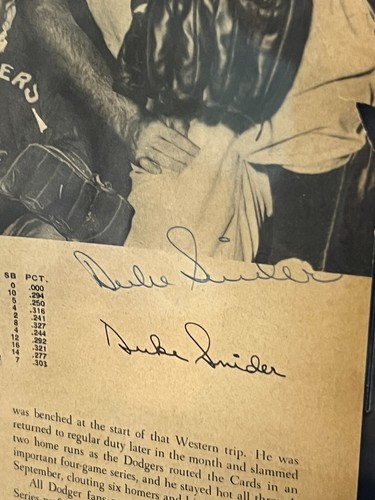 ERS
Duke Snider
SB PCT.
0 .000
10 .294
5 .250
4 .316
2 .241
8 .327
4 .244
12 .292
16 .321
14 .277
7 .303
Duke Snider
was benched at the start of that Western trip. He was
returned to regular duty later in the month and slammed
two home runs as the Dodgers routed the Cards in an
important four-game series, and he stayed hot all
September, clouting six homers and
All Dodger fans
Series